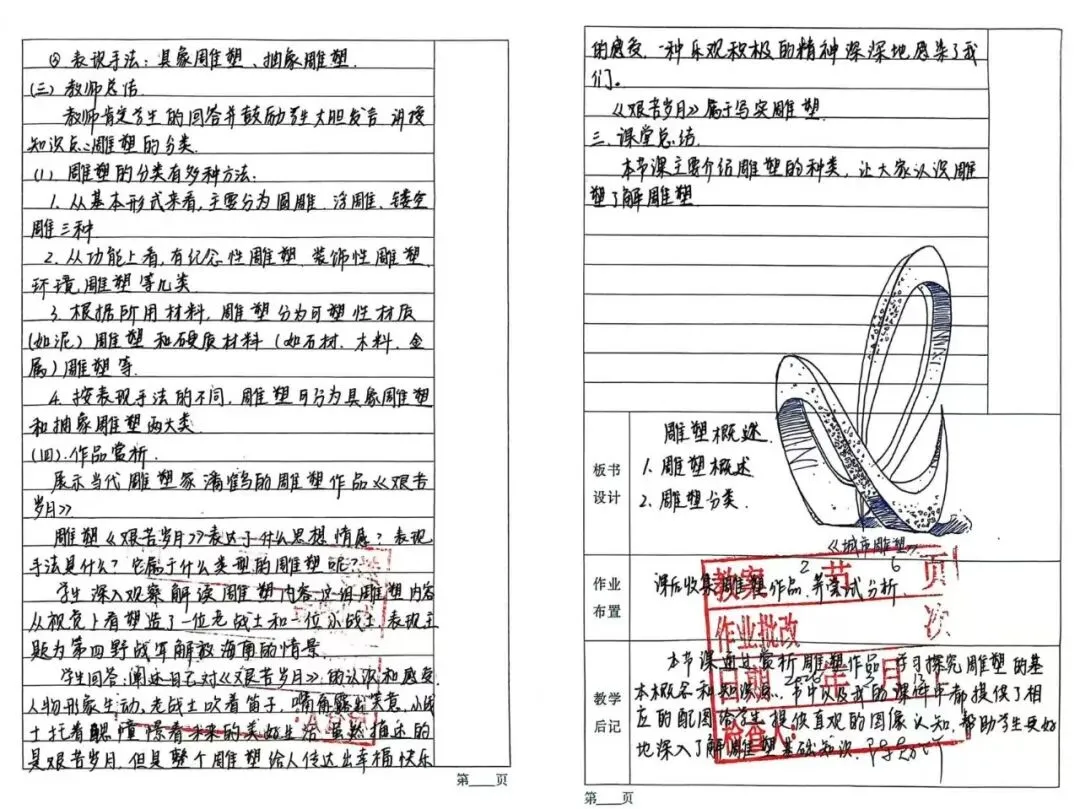 ④ 表现手法：具象雕塑、抽象雕塑.
(三) 教师总结.
教师肯定学生的回答并鼓励学生大胆发言 讲授
知识点：雕塑的分类.
(1) 雕塑的分类有多种方法：
1. 从基本形式来看，主要分为圆雕、浮雕、镂空
雕三种
2. 从功能上看，有纪念性雕塑、装饰性雕塑、
环境雕塑等几类.
3. 根据所用材料，雕塑分为可塑性材质
(如泥) 雕塑和硬质材料 (如石材、木料、金
属) 雕塑等.
4. 按表现手法的不同，雕塑可分为具象雕塑
和抽象雕塑两大类.
(四) 作品赏析.
展示当代雕塑家潘鹤的雕塑作品《艰苦
岁月》
雕塑《艰苦岁月》表达了什么思想情感？表现
手法是什么？它属于什么类型的雕塑呢？
学生深入观察解读雕塑内容.这组雕塑内容
从视觉上看塑造了一位老战士和一位小战士.表现主
题为第四野战军解放海南的情景.
学生回答：阐述自己对《艰苦岁月》的认识和感受
人物形象生动，老战士吹着笛子，嘴角露出笑意，小战
士托着腮憧憬着未来的美好生活 虽然描述的
是艰苦岁月，但是整个雕塑给人传达出幸福快乐
第 页
的感受，一种乐观积极的精神深深地感染了我
们。
《艰苦岁月》属于写实雕塑
三. 课堂总结.
本节课主要介绍雕塑的种类，让大家认识雕
塑了解雕塑
板书
设计
雕塑概述.
1. 雕塑概述
2. 雕塑分类.
《城市雕塑》
作业
布置
课后收集雕塑作品，并尝试分析.
教案 2 节 6 页
作业批改 次
日期 年 月
检查人：
教学
后记
本节课通过赏析雕塑作品，学习探究雕塑的基
本概念和知识点. 书中以及我的课件中都提供了相
应的配图给学生提供直观的图像认知，帮助学生更好
地深入了解雕塑基础知识.
第 页